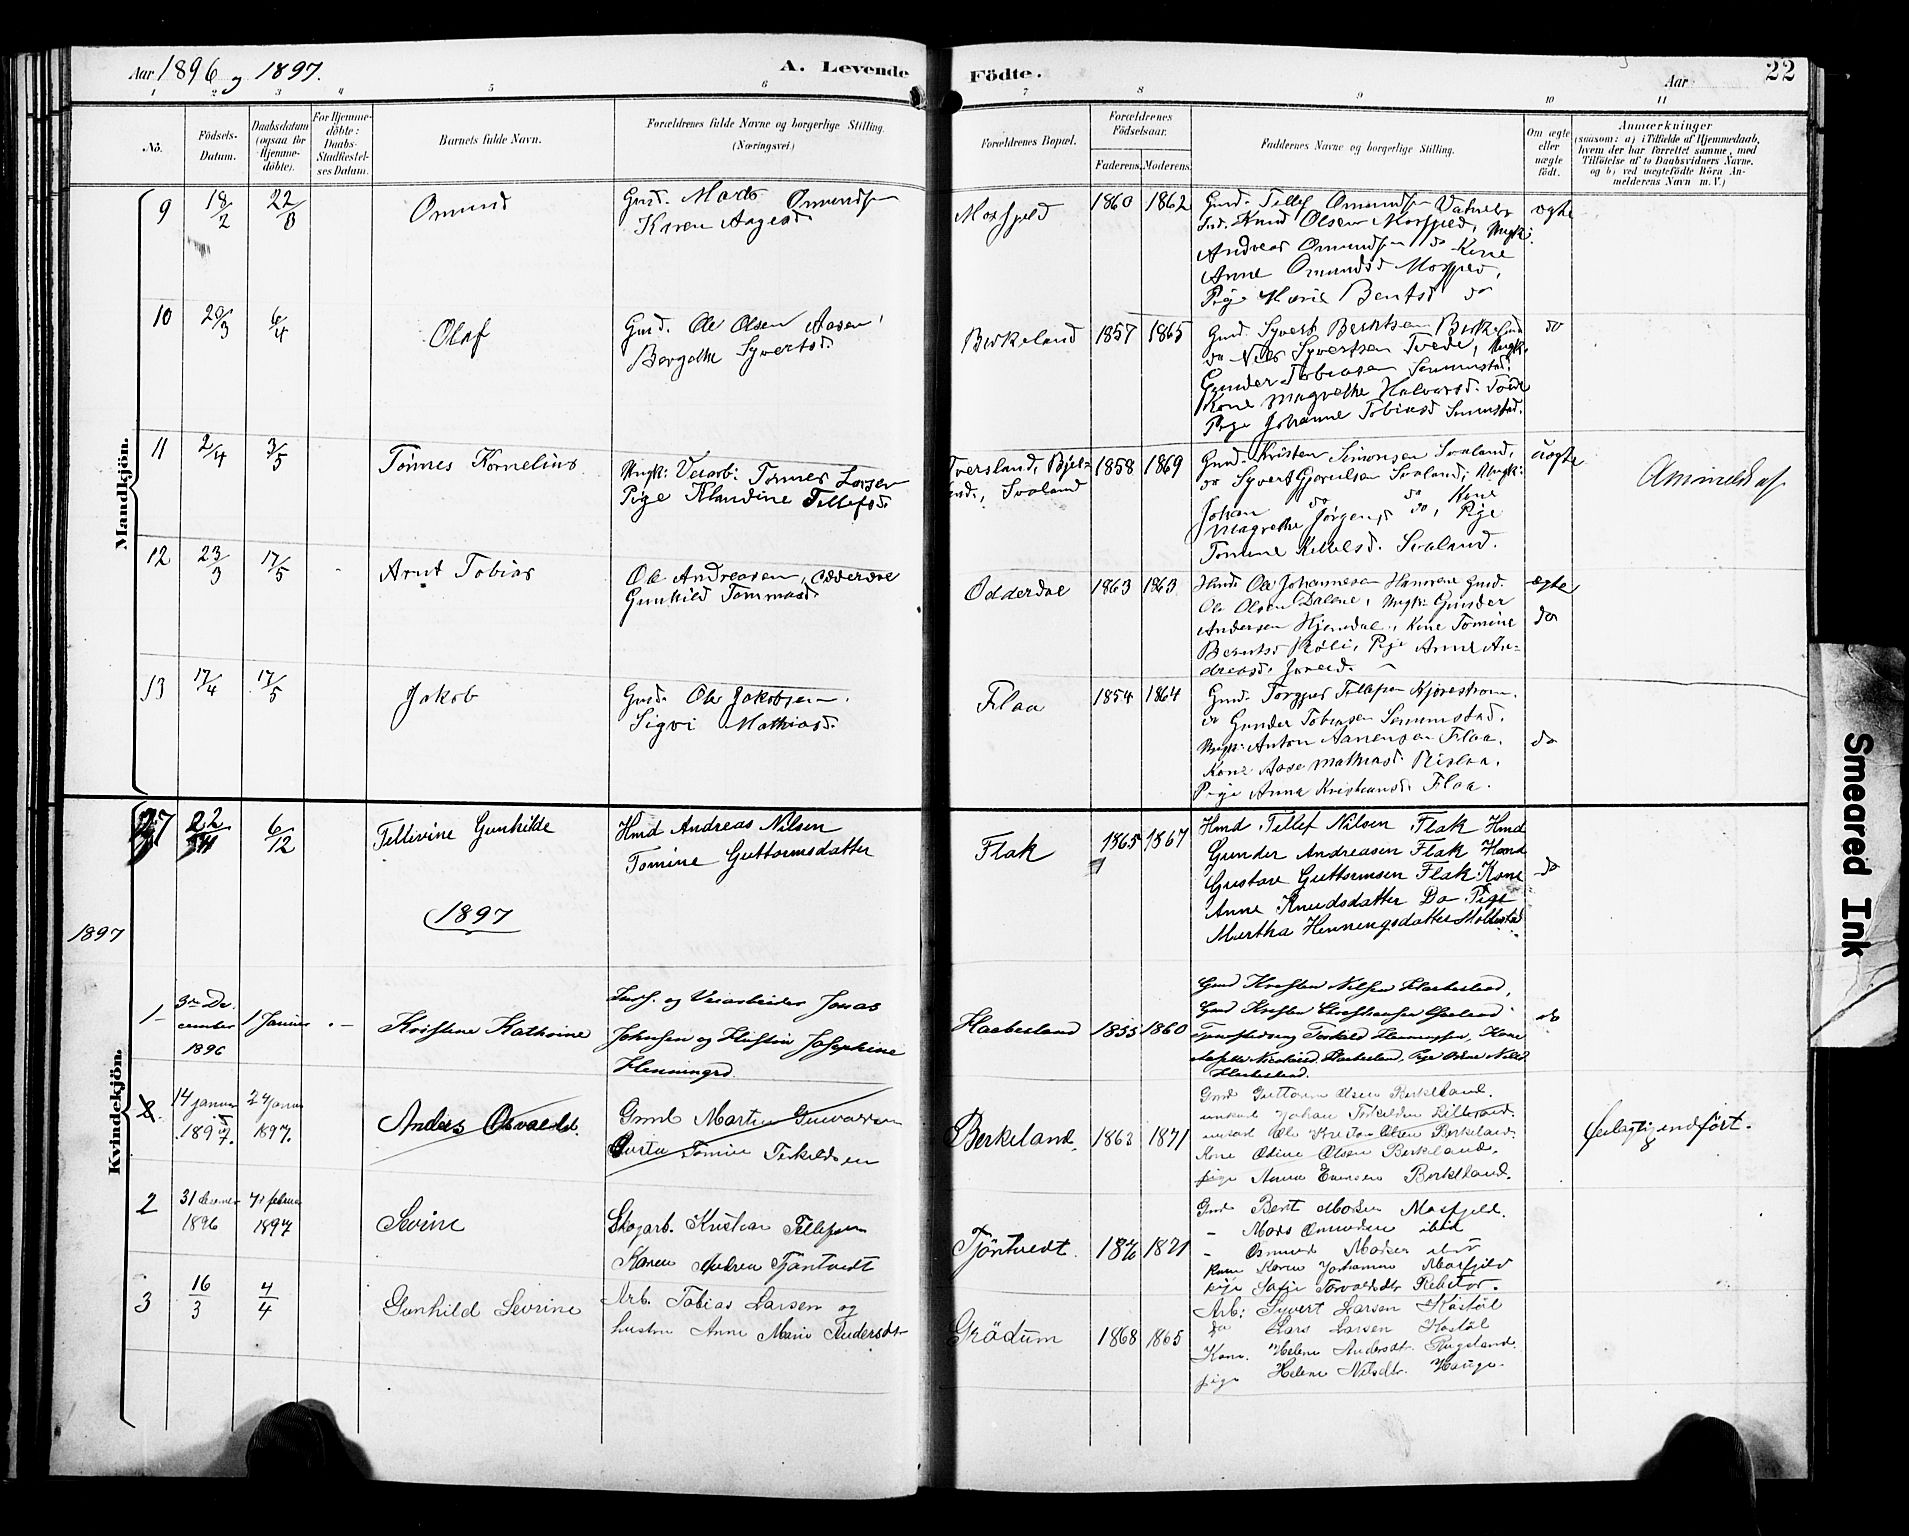 Aar 1896 og 1897.
A. Levende
Födte.
Aar
22
1 2 3 4 5 6 7 8 9 10 11
No.
Födsels-
Datum.
Daabsdatum
(ogsaa for
Hjemme-
döbte).
For Hjemme-
döbte:
Daabs-
Stadfæstel-
ses Datum.
Barnets fulde Navn.
Forældrenes fulde Navne og borgerlige Stilling.
(Næringsvei)
Forældrenes Bopæl.
Forældrenes
Födselsaar.
Faderens. Moderens.
Faddernes Navne og borgerlige Stilling.
Om ægte
eller
uægte
födt.
Anmærkninger
(saasom: a) i Tilfælde af Hjemmedaab,
hvem der har forrettet samme, med
Tilföielse af to Daabsvidners Navne.
og b) ved uægtefödte Börn An-
melderens Navn m. V.)
Mandkjön.
9 18/2 22/3 Omund
Gmd. Mads Omundsen
Karen Aagesd
Mosfjeld 1860 1862
Gmd. Tellef Omundsen Vatnebo
Gmd. Knud Olsen Mosfjeld, Ungk:
Andreas Omundsen do Kone
Anne Omundsd Mosfjeld,
Pige Marie Bentsd do
ægte
10 29/3 6/4 Olaf
Gmd. Ole Olsen Aasen,
Borgethe Syvertsd.
Birkeland 1857 1865
Gmd Syvert Berntsen Birkeland
do Nils Syvertsen Tvede, Ungk.
Gunder Tobiasen Senumstad.
Kone Magrethe Halvorsd. Tvede
Pige Johanne Tobiasd Senumstad.
do
11 2/4 3/5 Tönnes Kornelius
Ungk: Veiarb: Tönnes Larsen
Pige Klandine Tellefsd.
Tversland, Bjel-
land, Svaland
1858 1869
Gmd. Kristen Simonsen Svaland,
do Syvert Gjerulsen Svaland, Ungk:
Johan do do, Kone
Magrethe Jörgensd do, Pige
Tomine Kettelsd. Svaland.
uægte
Anmeldt af
12 23/3 17/5 Arnt Tobias
Ole Andreasen, Odderdal
Gunhild Tommasd.
Odderdal 1863 1863
Hmd. Ole Johannesen Gmd.
Ole Olsen Dalene, Ungk: Gunder
Andersen Hjemdal, Kone Tomine
Berntsd Röli, Pige Anne An-
dreasd.
ægte
do
13 17/4 17/5 Jakob
Gmd. Ole Jakobsen.
Sigvi Mathiasd.
Flaa 1854 1864
Gmd. Torgjus Tellefsen Kjörestrom.
do Gunder Tobiasen Senumstad.
Ungk: Anton Aanensen Flaa.
Kone Aase Mathiasd Rislaa,
Pige Anna Kristiansd. Flaa.
do
Kvindekjön.
27 22/11 6/12 Tellevine Gunhilde
Hmd Andreas Nilsen
Tomine Guttormsdatter
Flak 1865 1867
Hmd Tellef Nilsen Flak Hmd
Gunder Andreasen Flak Hmd
Gustav Guttormsen Flak Kone
Anne Knudsdatter Do Pige
Martha Henningsdatter Mollestad
do
1897
1897
1 3die De-
cember
1896
1 Januar Kristine Kathrine
Inds. og Veiarbeider Jonas
Johnsen og Hustru Josephine
Henningsd.
Haabesland 1855 1860
Gmd Kristen Nilsen Haabesland,
Haabesland.
do
2 14 januar
1897.
24 januar
1897.
Anders Osvald.
Gmd Martin Gunvaldsen
Gusta Tomine Terkeldsen
Berkeland 1863 1871
Gmd Guttorm Olsen Berkeland.
unkarl Johan Torkeldsen Lilleraid.
unkarl Ole Kristen Olsen Berkeland.
Kone Odine Olsen Berkeland.
pige Anna Evensen Berkeland.
feilagtig indfört.
2 31 desember
1896
7de februar
1897
Sevine
Skogarb. Kristian Tellefsen
Karen Andrea Tjöntvedt
Tjöntvedt. 1871
Gmd Bent Madsen Mosfjeld.
- Mads Omundsen ibid
- Omund Madsen ibid
kone Karen Johanne Mosfjeld
pige Sofie Torvaldsdtr Rebstor.
3 16/3 4/4 Gunhild Sevrine
Arb. Tobias Larsen og
hustru Anne Marie Andersdtr
Grödum 1868 1865
Arb: Syvert Larsen Kostöl
do Lars Larsen Kostöl
Kone. Helene Andersdt. Rugsland.
pige Helene Nilsdtr. Hauge.
Smeared Ink